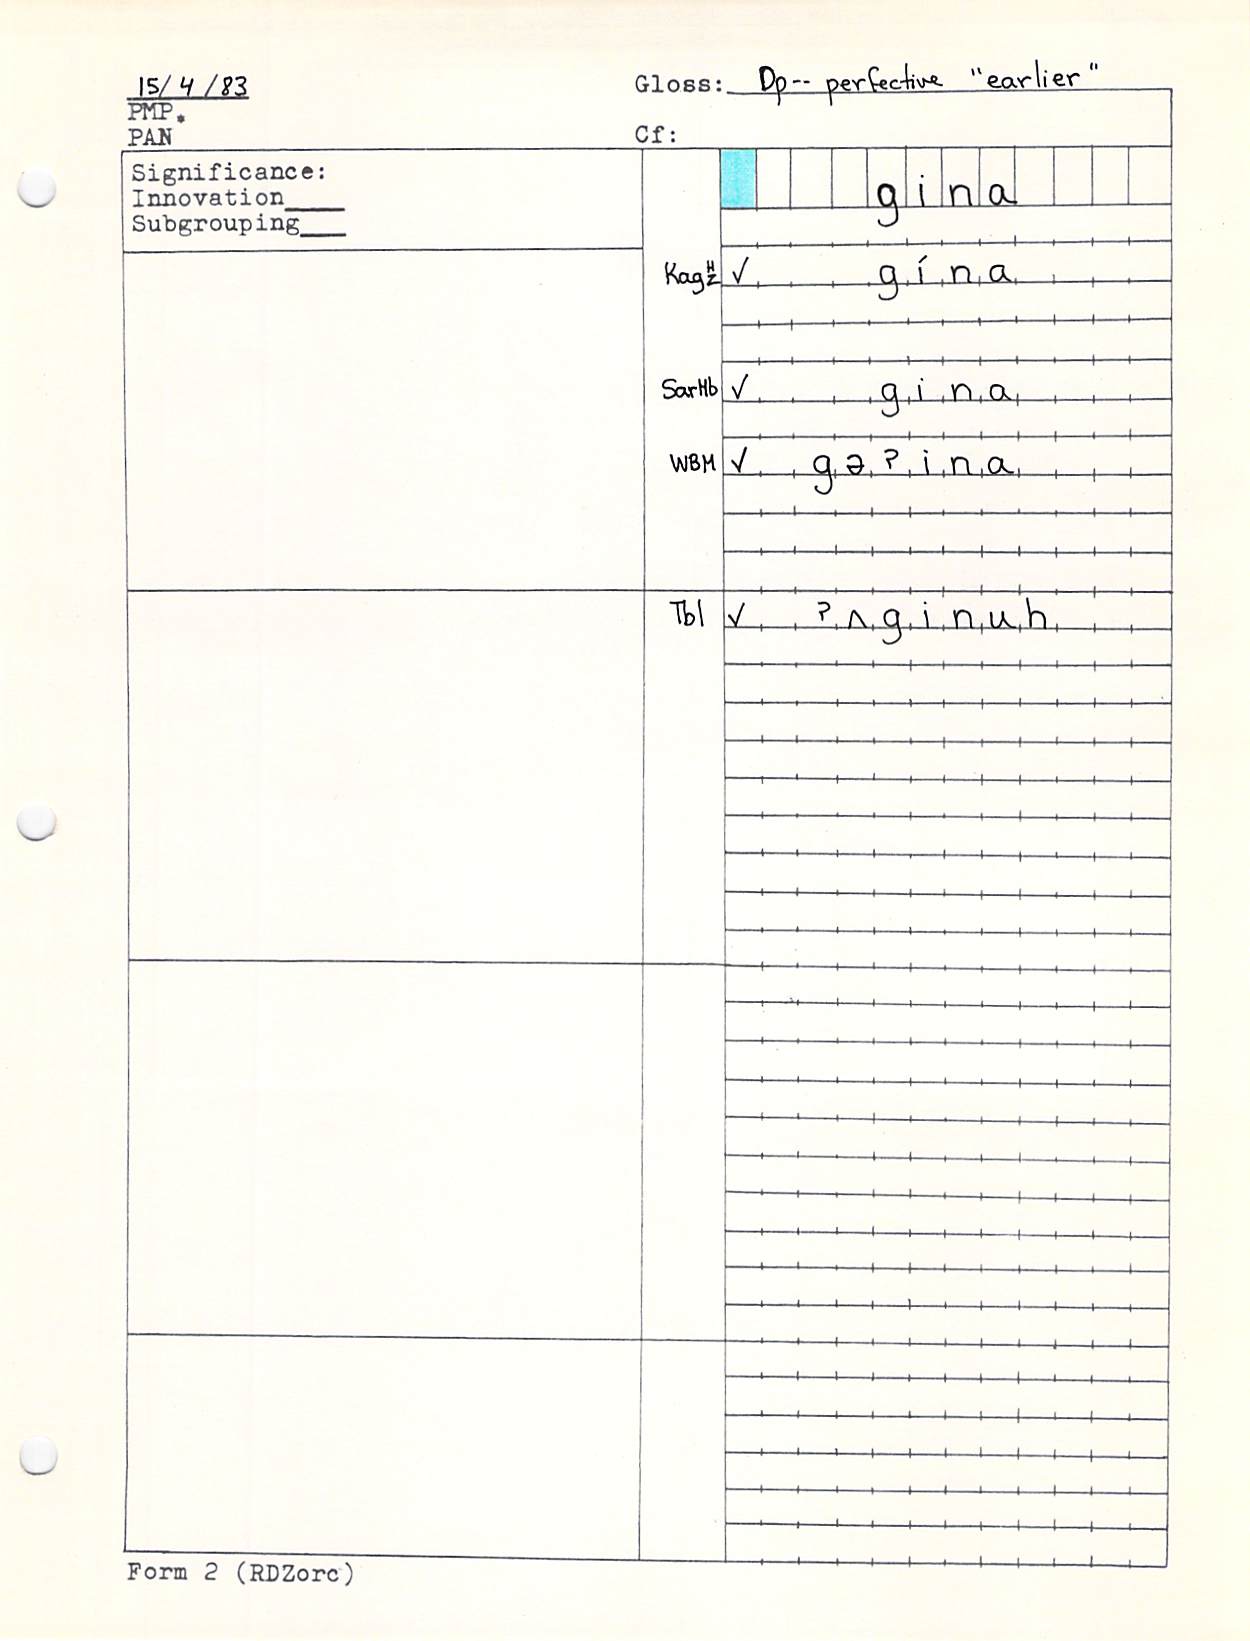 15/4/83 Gloss: Dp-- perfective "earlier"
PMP.
PAN Cf:
Significance:
Innovation____
Subgrouping___
gina
Kag H Z ✓ gína
SarMb ✓ gina
WBM ✓ gəʔina
Tbl ✓ ʔʌginuh
Form 2 (RDZorc)